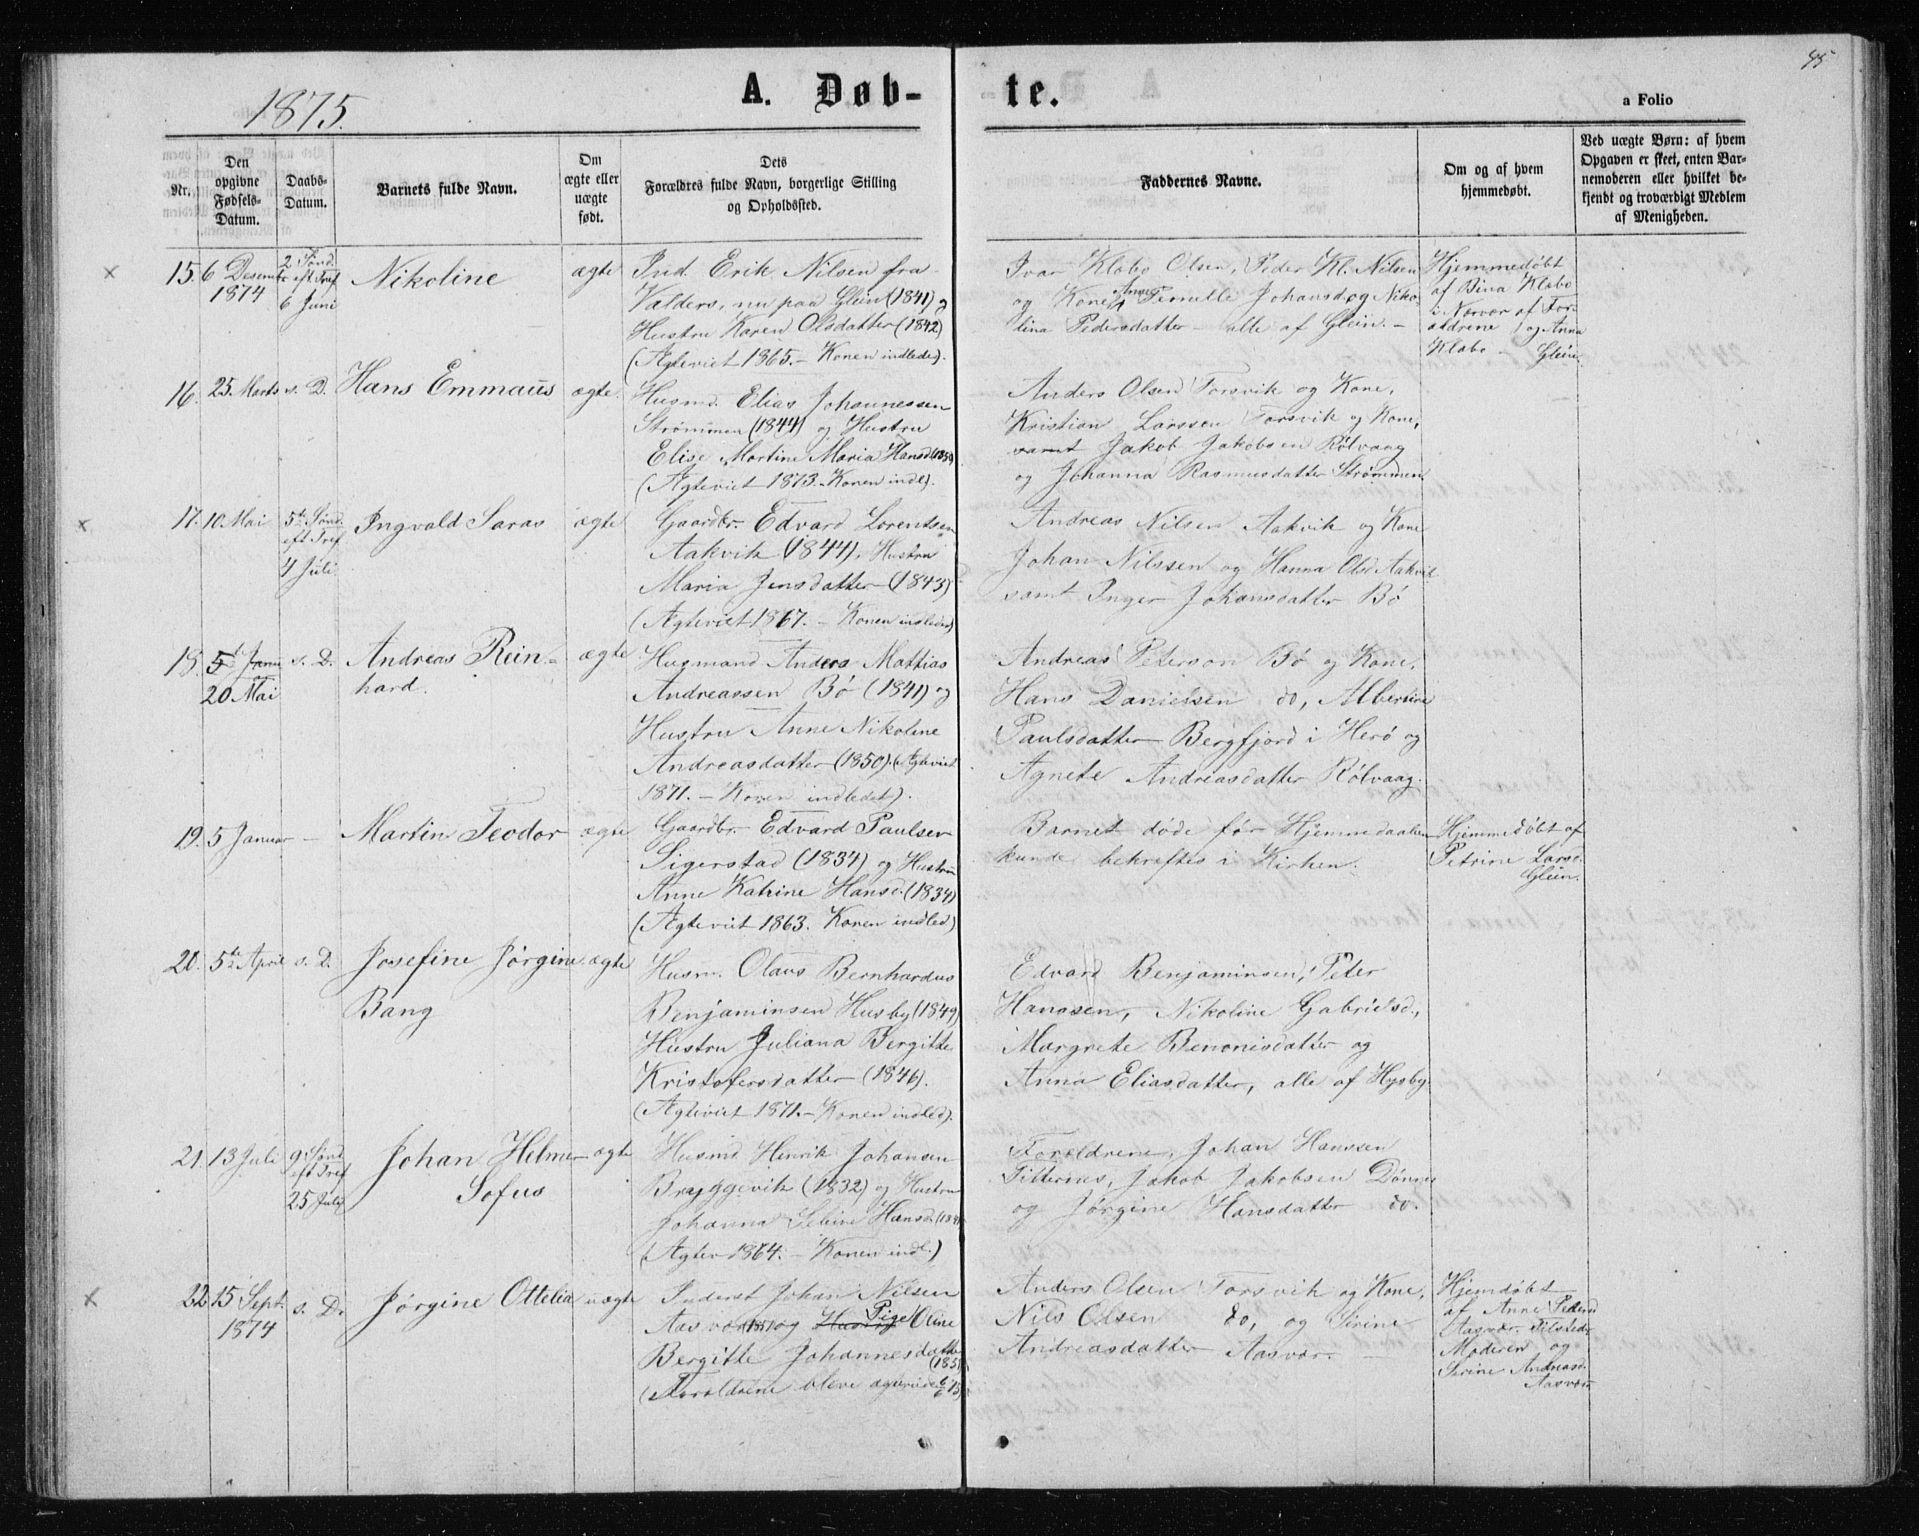 45
1875.
A. Døb-
te.
a Folio
Nr.
Den
opgivne
Fødsels-
Datum.
Daabs-
Datum.
Barnets fulde Navn.
Om
ægte eller
uægte
født.
Dets
Forældres fulde Navn, borgerlige Stilling
og Opholdssted.
Faddernes Navne.
Om og af hvem
hjemmedøbt.
Ved uægte Børn: af hvem
Opgaven er skeet, enten Bar-
nemoderen eller hvilket be-
kjendt og troværdigt Medlem
af Menigheden.
15. 6 Desembr
1874
2 Sønd.
eft Tref
6 Juni
Nikoline
ægte
Ind. Erik Nilsen fra
Valders, nu paa Glein (1841) og
Hustru Karen Olsdatter (1842)
(Ægteviet 1865. - Konen indledet).
Ivar Klabo Olsen, Peder Kl. Nilsen
og Kone Anne Pernille Johansd og Niko-
lina Pedersdatter - alle af Glein. -
Hjemmedøbt
af Bina Klabo
i Nærvær af For-
ældrene og Anna
Klabo - Glein.
16. 25. Marts s. D. Hans Emmaus ægte.
Husmd. Elias Johannessen
Strømmen (1844) og Hustru
Elise Martine Maria Hansd
(Ægteviet 1873. - Konen indl).
Anders Olsen Forsvik og Kone,
Kristian Larssen Forsvik og Kone,
samt Jakob Jakobsen Rølvaag
og Johanna Rasmusdatter Strømmen
17. 10 Mai
5te Sønd.
eft Tref
4 Juli
Ingvald Saras
ægte
Gaardbr. Edvard Lorentsen
Aakvik (1844), Hustru
Maria Jensdatter (1843)
(Ægteviet 1867. - Konen indledet)
Andreas Nilsen Aakvik og Kone
Johan Nilssen og Hanna Olsd Aakvik
samt Inger Johansdatter Bø
18. 5 Janu
20 Mai
s. D. Andreas Rein-
hard.
ægte
Husmand Anders Mattias
Andreassen Bø (1841) og
Hustru Anne Nikoline
Andreasdatter (1850). (Ægteviet
1871. - Konen indledet).
Andreas Peterson Bø og Kone,
Hans Danielsen do, Albertine
Paulsdatter Bergfjord i Herø og
Agnete Andreasdatter Rølvaag.
19. 5 Januar - Martin Teodor ægte
Gaardbr. Edvard Paulsen
Sigerstad (1834) og Hustru
Anne Katrine Hansd. (1834)
(Ægteviet 1863. Konen indled)
Barnet døde før Hjemmedaaben
kunde bekreftes i Kirken.
Hjemmedøbt af
Petrine Larsd.
Glein.
20. 5te April s. D. Josefine Jørgine
Bang
ægte
Husm. Olaus Bernhardus
Benjaminsen Husby (1849)
Hustru Juliana Bergitte
Kristofersdatter (1846).
(Ægteviet 1871. - Konen indled).
Edvard Benjaminsen, Peter
Hanssen, Nikoline Gabrielsd.,
Margrete Benonisdatter og
Anna Eliasdatter, alle af Hysby
21. 13 Juli
9. Sønd
eft Tref
25 Juli
Johan Helmer
Sofus
ægte
Husmd Henrik Johansen
Bryggevik (1832) og Hustru
Johanna Sebine Hansd.
(Ægtev 1864. - Konen indl.)
Forældrene, Johan Hanssen
Titternes, Jakob Jakobsen Dønnes
og Jørgine Hansdatter do.
22. 15 Sept.
1874
s. D. Jørgine Ottelia uægte
Inderst Johan Nilsen
Aasvær og Hustru Pige Oline
Bergitte Johannesdatter
(1851)
(Forældrene bleve ægteviede 6/6 75)
Anders Olsen Forsvik og Kone,
Nils Olsen do, og Sirine
Andreasdatter Aasvær.
Hjemdøbt
af Anne Pedersd
Aasvær. Tilstede
Moderen og
Sirine Andreasd.
Aasvær